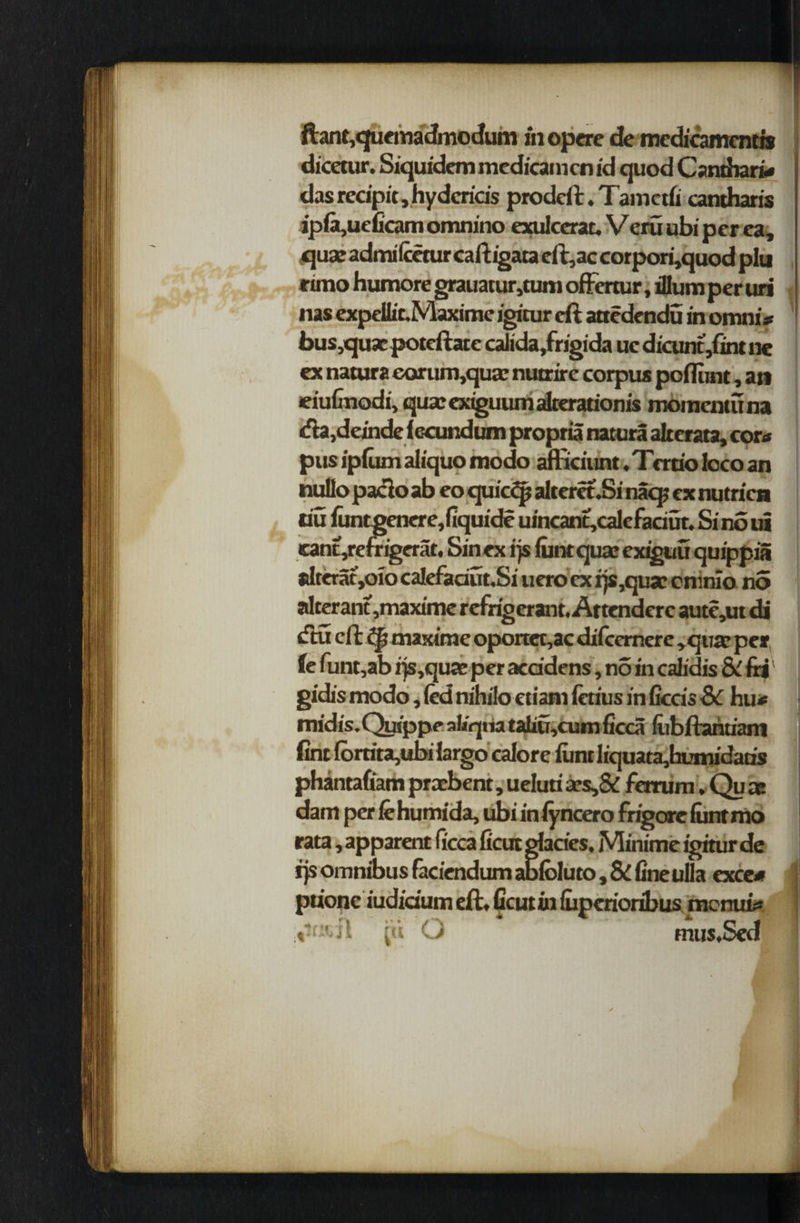 ſtant,quemadmodum in opere de medicamentis
dicetur. Siquidem medicamen id quod Canthari⸗
das recipit, hydericis prodeſt. Tametſi cantharis
ipſa,ueſicam omnino exulcerat. Verũ ubi per ea,
quæ admiſcẽtur caſtigata eſt,ac corpori,quod plu
rimo humore grauatur,tum offertur, illum per uri
nas expellit.Maxime igitur eſt attẽdendũ in omni⸗
bus,quæ poteſtate calida,frigida ue dicunt̃,ſint ne
ex natura eorum,quæ nutrire corpus poſſunt, an
eiuſmodi, quæ exiguum alterationis momentũ na
cta,deinde ſecundum propriã naturã alterata, cor⸗
pus ipſum aliquo modo afficiunt. Tertio loco an
nullo pacto ab eo quicꝙ alteret̃.Si nãqꝫ ex nutrien
tiũ ſunt genere,ſiquidẽ uincant̃,calefaciũt. Si nõ ui
cant̃,refrigerãt. Sin ex ijs ſunt quæ exiguũ quippiã
alterãt̃,oĩo calefaciũt.Si uero ex ijs,quæ omnino nõ
alterant̃,maxime refrigerant.Attendere autẽ,ut di
ctũ eſt ꝙ maxime oportet,ac diſcernere, quæ per
ſe ſunt,ab ijs,quæ per accidens, nõ in calidis & fri
gidis modo, ſed nihilo etiam ſetius in ſiccis & hu⸗
midis.Quippe aliqua taliũ,cum ſiccã ſubſtantiam
ſint ſortita,ubi largo calore ſunt liquata,humidatis
phantaſiam præbent, ueluti æs,& ferrum. Quæ
dam per ſe humida, ubi in ſyncero frigore ſunt mo
rata, apparent ſicca ſicut glacies. Minime igitur de
ijs omnibus faciendum abſoluto, & ſine ulla exce⸗
ptione iudicium eſt. ſicut in ſuperioribus monui⸗
O mus.Sed